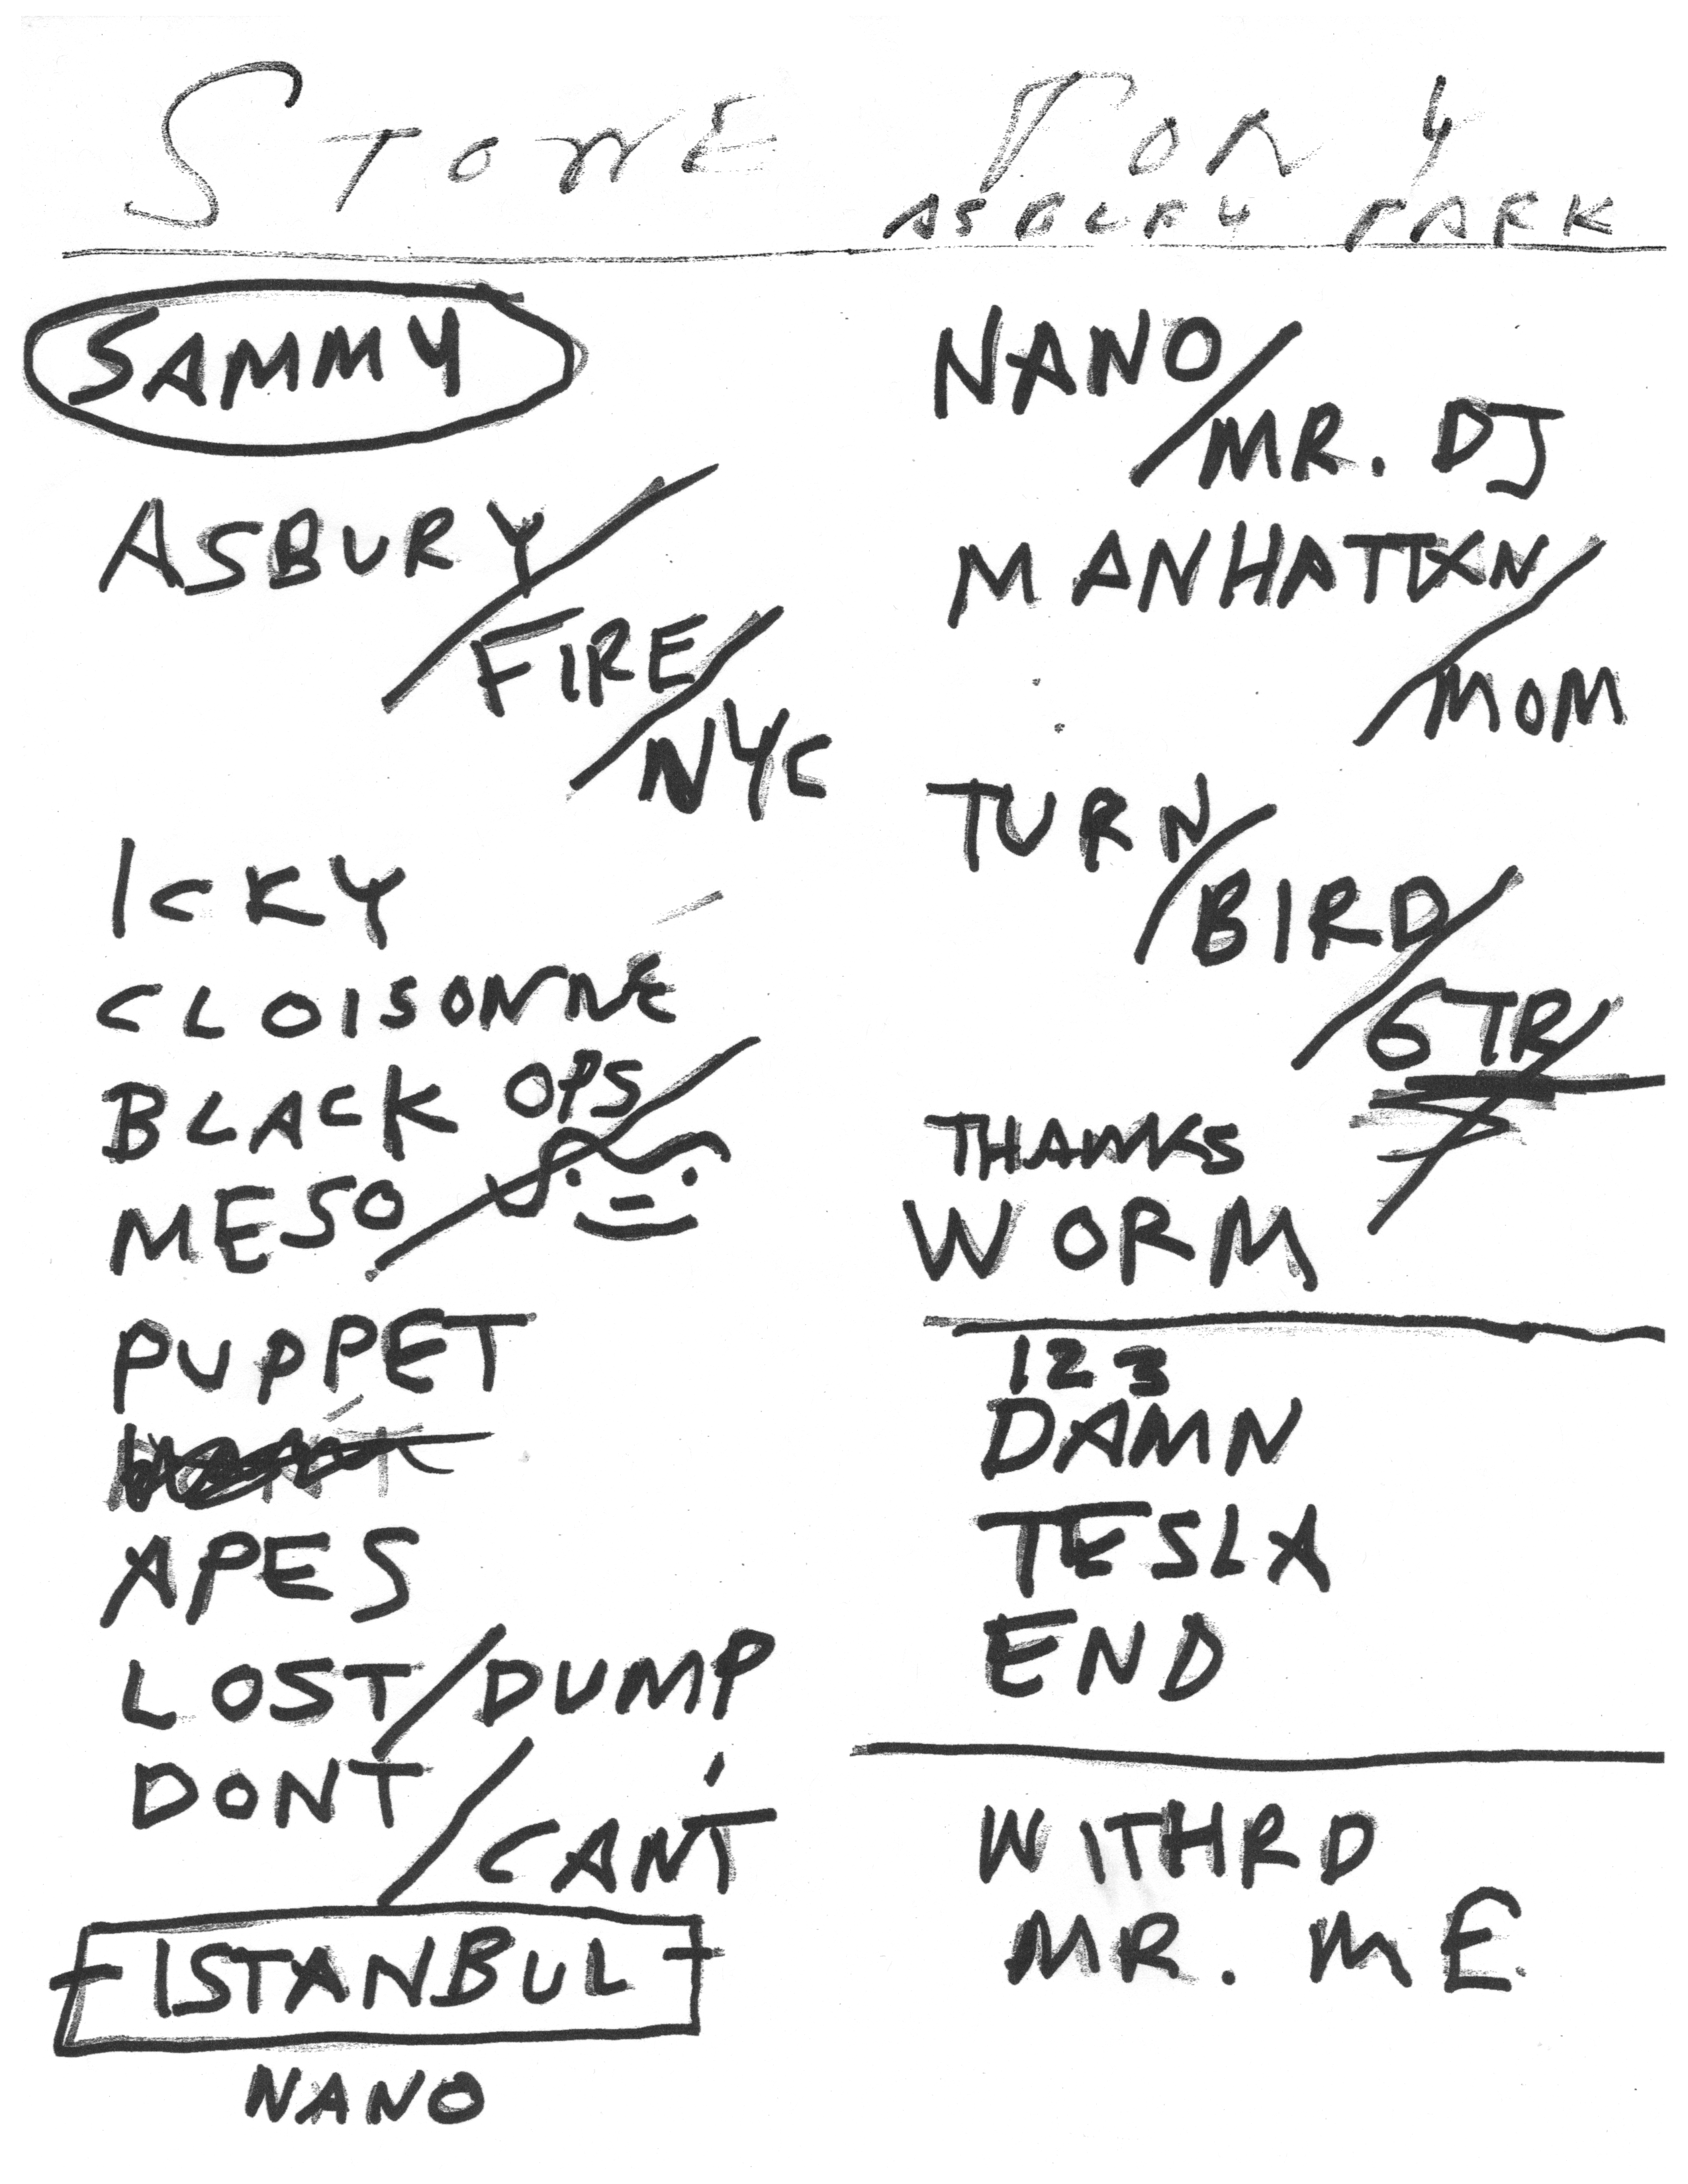 STONE PONY
ASBURY PARK
SAMMY
ASBURY/
FIRE/
NYC
ICKY
CLOISONNÉ
BLACK OPS/
MESO
PUPPET
APES
LOST/DUMP
DONT/
CAN'T
ISTANBUL
NANO
NANO/
MR. DJ
MANHATTAN/
MOM
TURN/
BIRD/
GTR/
THANKS
WORM
123
DAMN
TESLA
END
WITHRD
MR. ME